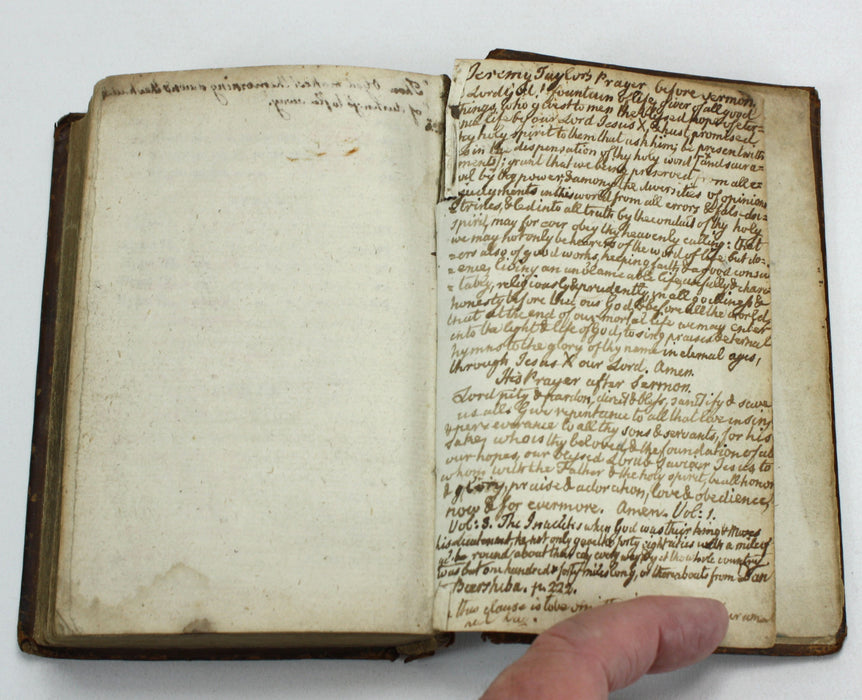 Jeremy Taylor's Prayer before Sermon.
Lord God! fountain of life, giver of all good
things, who givest to men the blessed hope of eter-
nal life by our Lord Jesus X, & hast promised
thy holy spirit to them that ask him; be present with
us in the dispensation of thy holy word [and sacra-
ments]; grant that we being preserved from all e-
vil by thy power, & among the diversities of opinions
& judgments in this world from all errors & fals-doc-
& led into all truth by the conduct of thy holy
spirit, may for ever obey thy heavenly calling: that
we may not only be hearers of the word of life but do-
-ers also of good works, keeping faith & a good consci-
-ence, living an unblameable life, usefully & chari-
-tably, religiously & prudently, in all godliness &
honesty before thee our God & before all the world,
that at the end of our mortal life we may enter
into the light & life of God, to sing praises & eternal
hymns to the glory of thy name in eternal ages,
through Jesus X our Lord. Amen.
His Prayer after Sermon.
Lord pity & pardon, direct & bless, sanctify & save
us all. Give repentance to all that live in sin,
& perseverance to all thy sons & servants, for his
sake, who is thy beloved & the foundation of all
our hopes, our blessed Lord & Saviour Jesus, to
whom with the Father & the holy spirit, be all honor
& glory, praise & adoration, love & obedience,
now & for evermore. Amen. Vol: 1.
Vol: 3. The Israelites when God was their king & Moses
his lieutenant he not only gave the forty eight cities with a mile of
round about their city every way, & the whole country
was but one hundred & forty miles long, or thereabouts from Dan
Beersheba. p. 222.
this clause is